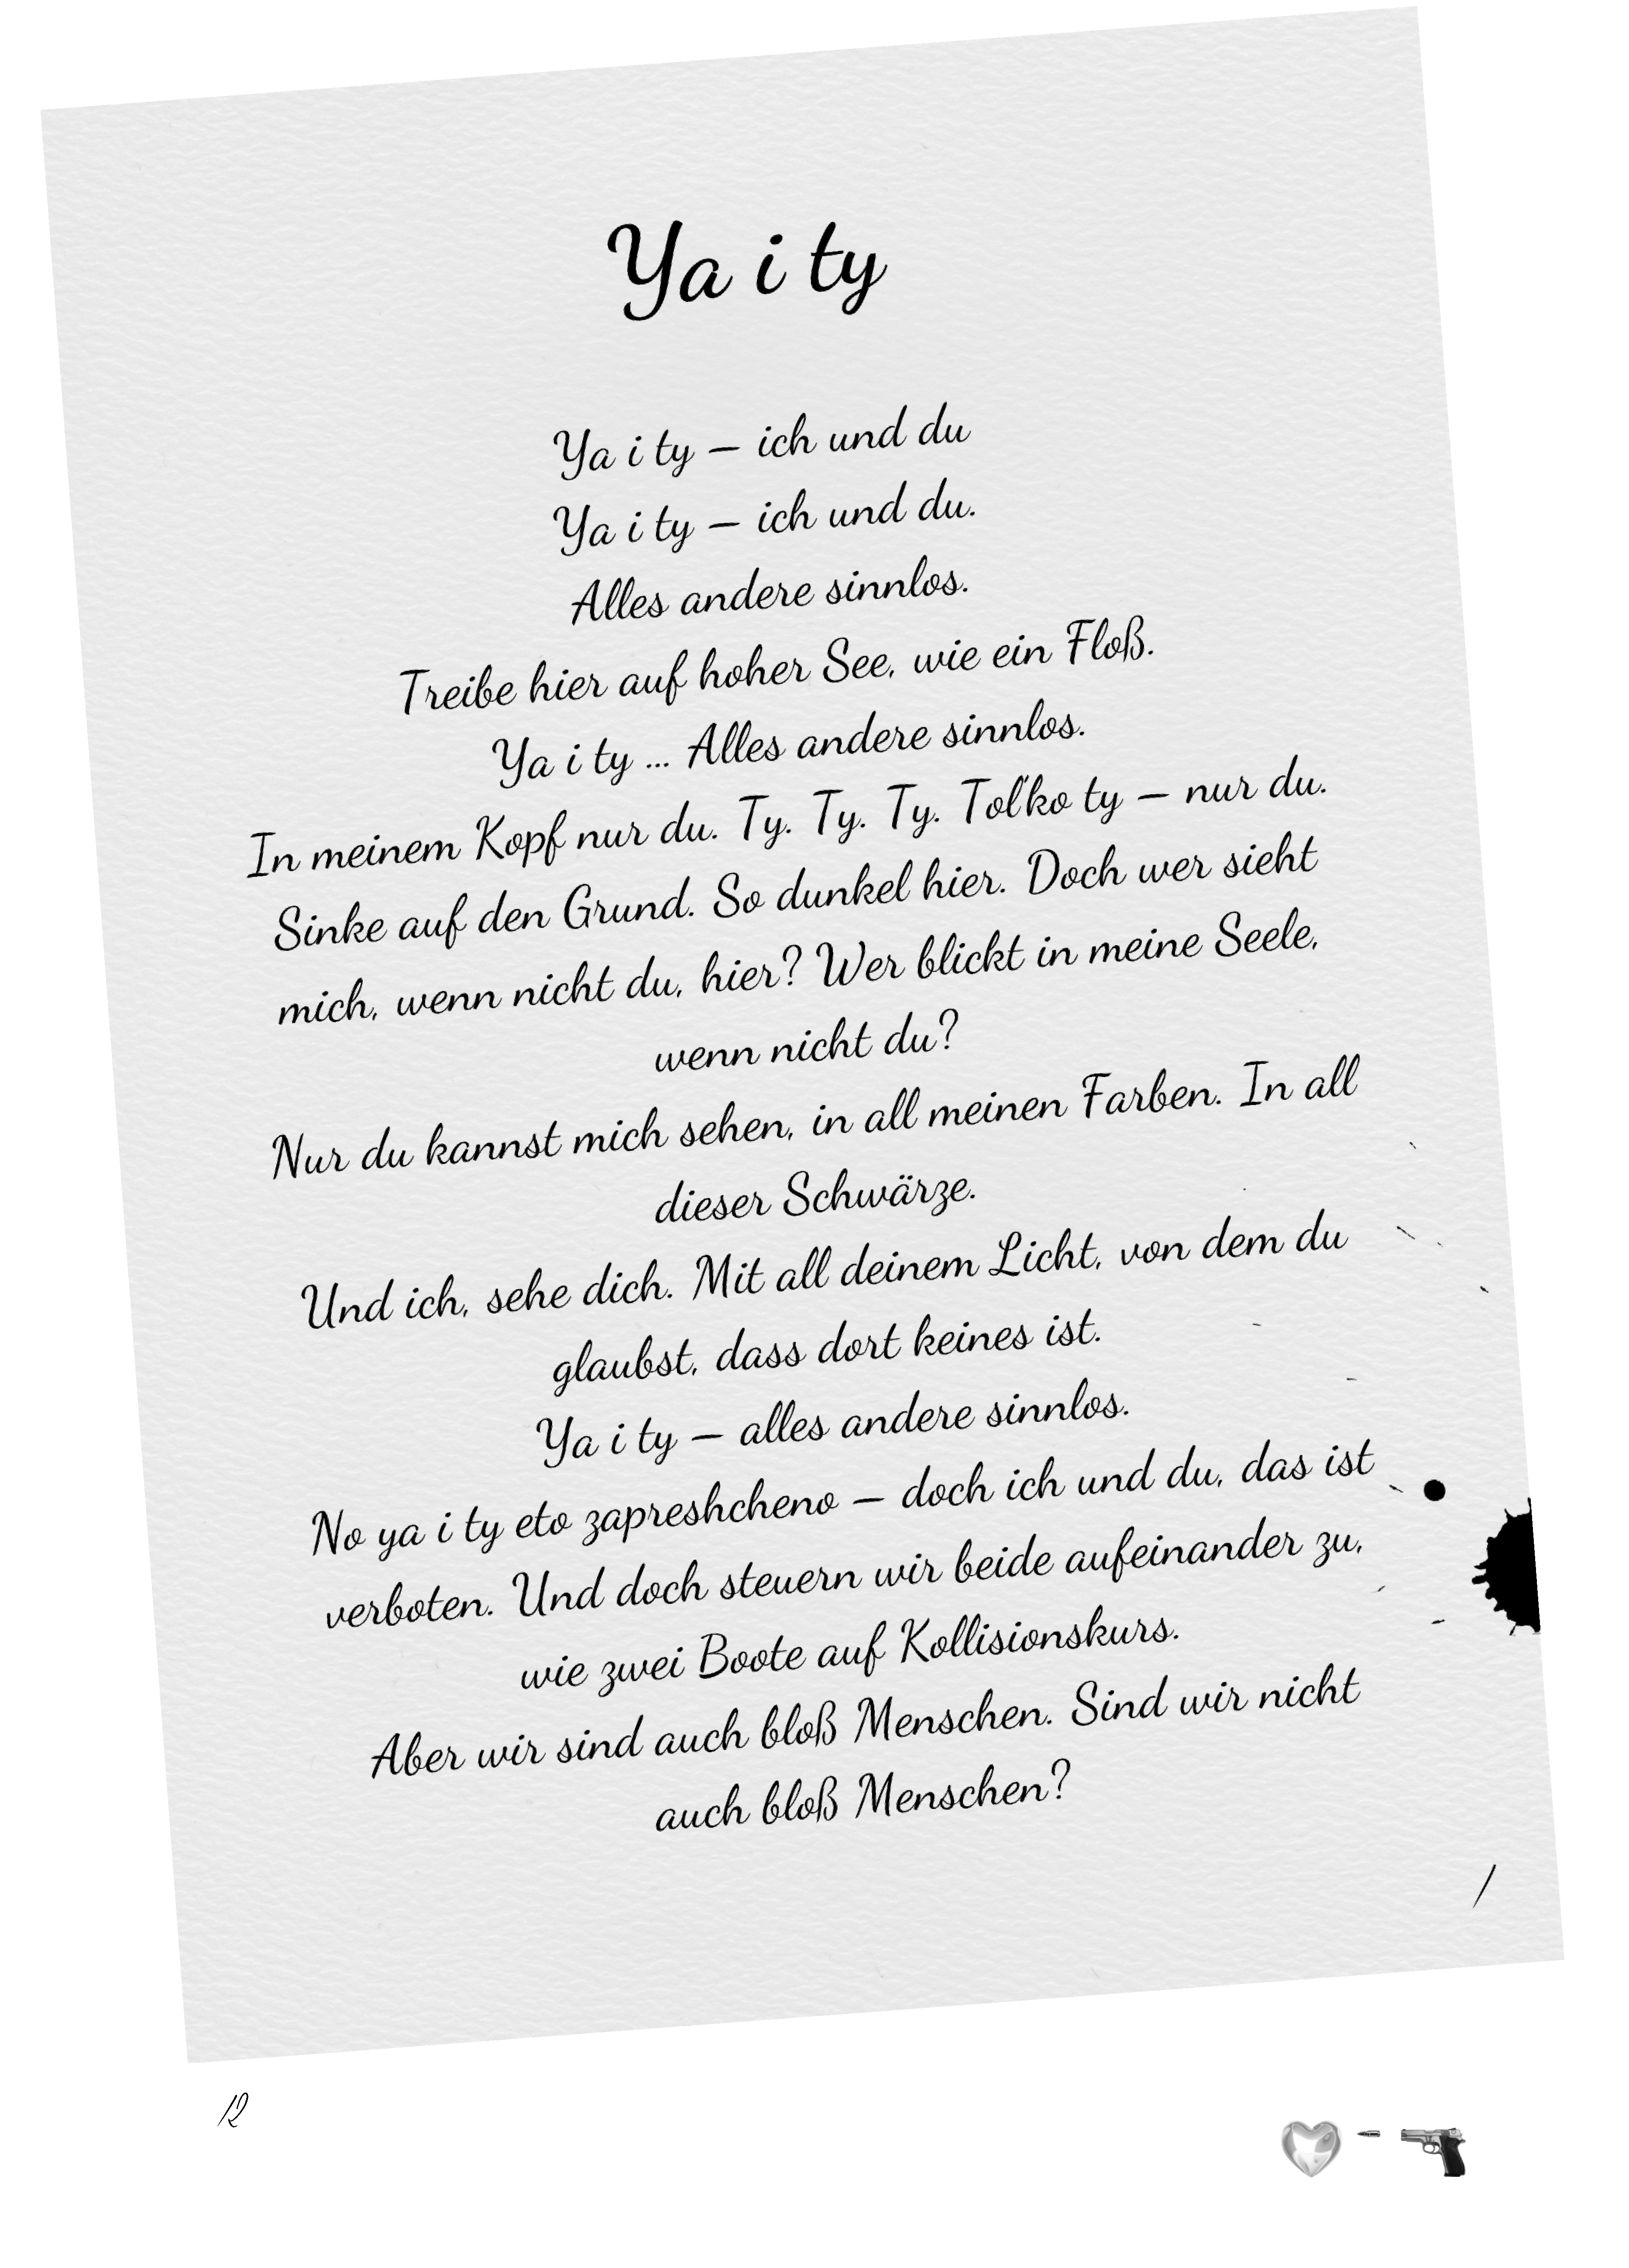 Ya i ty
Ya i ty – ich und du
Ya i ty – ich und du.
Alles andere sinnlos.
Treibe hier auf hoher See, wie ein Floß.
Ya i ty ... Alles andere sinnlos.
In meinem Kopf nur du. Ty. Ty. Ty. Tol'ko ty – nur du.
Sinke auf den Grund. So dunkel hier. Doch wer sieht
mich, wenn nicht du, hier? Wer blickt in meine Seele,
wenn nicht du?
Nur du kannst mich sehen, in all meinen Farben. In all
dieser Schwärze.
Und ich, sehe dich. Mit all deinem Licht, von dem du
glaubst, dass dort keines ist.
Ya i ty – alles andere sinnlos.
No ya i ty eto zapreshcheno – doch ich und du, das ist
verboten. Und doch steuern wir beide aufeinander zu,
wie zwei Boote auf Kollisionskurs.
Aber wir sind auch bloß Menschen. Sind wir nicht
auch bloß Menschen?
12